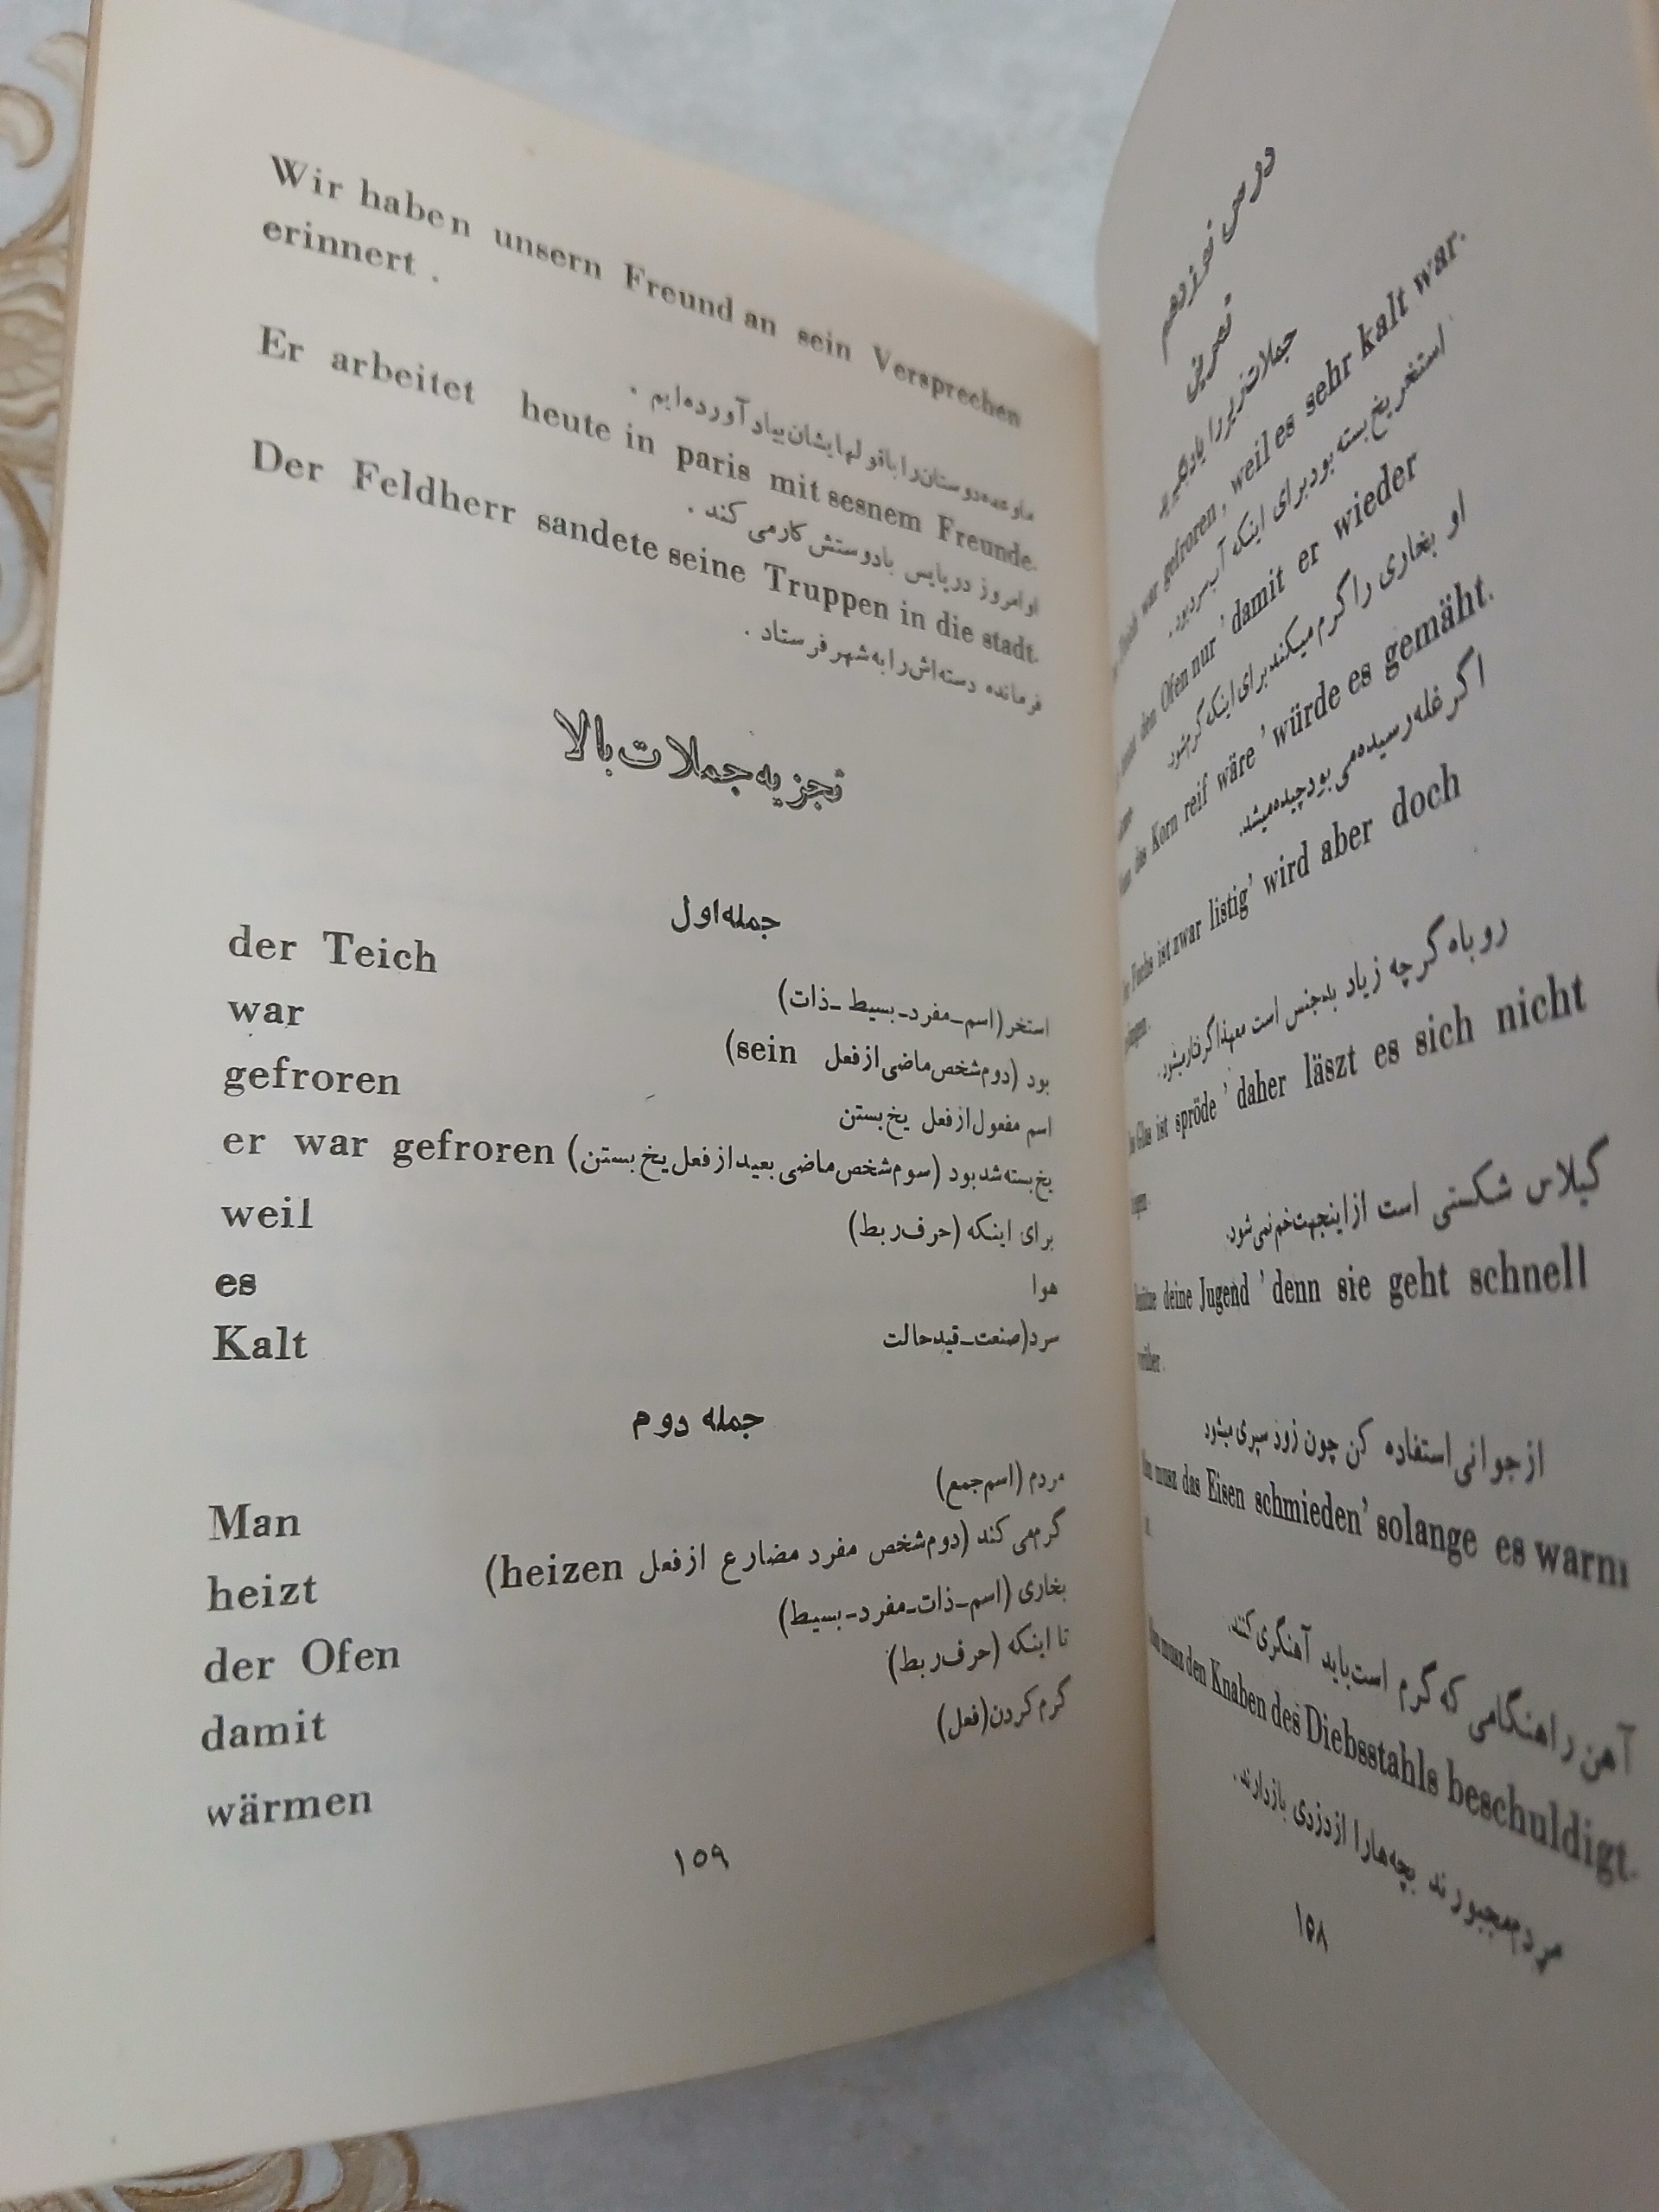 درس نوزدهم
تمرین
جملات زیر را یاد بگیرید
war gefroren, weil es sehr kalt war.
استخر یخ بسته بود برای اینکه آب سرد بود.
den Ofen nur ' damit er wieder
او بخاری را گرم میکند برای اینکه گرم شود.
das Korn reif wäre ' würde es gemäht.
اگر غله رسیده می بود چیده میشد.
Fuchs ist zwar listig' wird aber doch
روباه گرچه زیاد بدجنس است معهذا گرفتار میشود.
Glas ist spröde ' daher läszt es sich nicht
گیلاس شکستنی است از اینجهت خم نمی شود.
deine Jugend ' denn sie geht schnell
از جوانی استفاده کن چون زود سپری میشود
musz das Eisen schmieden' solange es warm
آهن را هنگامی که گرم است باید آهنگری کنند.
musz den Knaben des Diebsstahls beschuldigt.
مردم مجبورند بچه ها را از دزدی بازدارند.
۱۵۸
Wir haben unsern Freund an sein Versprechen
erinnert .
دوستان را با قولهایشان بیاد آورده ایم .
Er arbeitet heute in paris mit sesnem Freunde.
او امروز در پایس با دوستش کار می کند .
Der Feldherr sandete seine Truppen in die stadt.
فرمانده دسته اش را به شهر فرستاد .
تجزیه جملات بالا
جمله اول
der Teich استخر (اسم ـ مفرد ـ بسیط ـ ذات)
war بود (دوم شخص ماضی از فعل sein)
gefroren اسم مفعول از فعل یخ بستن
er war gefroren یخ بسته شد بود (سوم شخص ماضی بعید از فعل یخ بستن)
weil برای اینکه (حرف ربط)
es هوا
Kalt سرد (صنعت ـ قید حالت
جمله دوم
Man مردم (اسم جمع)
heizt گرم می کند (دوم شخص مفرد مضارع از فعل heizen)
der Ofen بخاری (اسم ـ ذات ـ مفرد ـ بسیط)
damit تا اینکه (حرف ربط)
wärmen گرم کردن (فعل)
۱۵۹